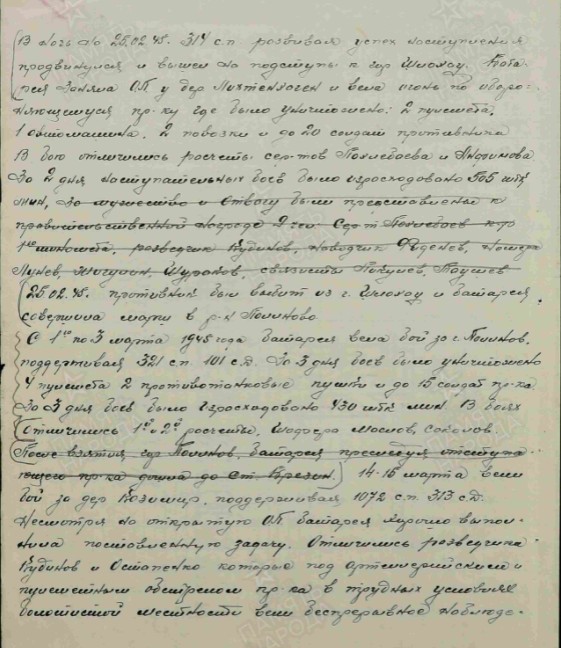 В ночь на 25.02.45. 314 с.п. развивая успех наступления
продвинулся и вышел на подступы к гор Шлохау. Бата-
рея заняла ОП у дер и вела огонь по оборо-
няющемуся пр-ку где было уничтожено: 2 пулемета,
1 автомашина, 2 повозки и до 20 солдат противника
В бою отличились расчеты сер-тов и
За 2 дня наступательных боев было израсходовано 505 штук
мин, за мужество и отвагу были представлены к
правительственной награде 9 чел. Сер-т к-р
1го миномета, разведчик Кубинов, наводчик номера
Лунев, связисты
25.02.45. противник был выбит из г. Шлохау и батарея
совершила марш в р-н Польново
С 1го по 3 марта 1945 года батарея вела бой за г. Польнов,
поддерживая 321 с.п. 101 с.д. За 3 дня боев было уничтожено
4 пулемета 2 противотанковые пушки и до 15 солдат пр-ка
За 3 дня боев было израсходовано 430 штк мин. В боях
отличились 1й и 2й расчеты, шофера Маслов, Соколов.
После взятия гор Польнов, батарея преследуя отступа-
ющего пр-ка дошла до ст. 14-15 марта вели
бой за дер Казимир, поддерживая 1072 с.п. 313 с.д.
Несмотря на открытую ОП батарея хорошо выпол-
нила поставленную задачу. Отличились разведчики
Кубинов и Остапенко которые под артиллерийским и
пулеметным обстрелом пр-ка в трудных условиях
болотистой местности вели беспрерывное наблюде-